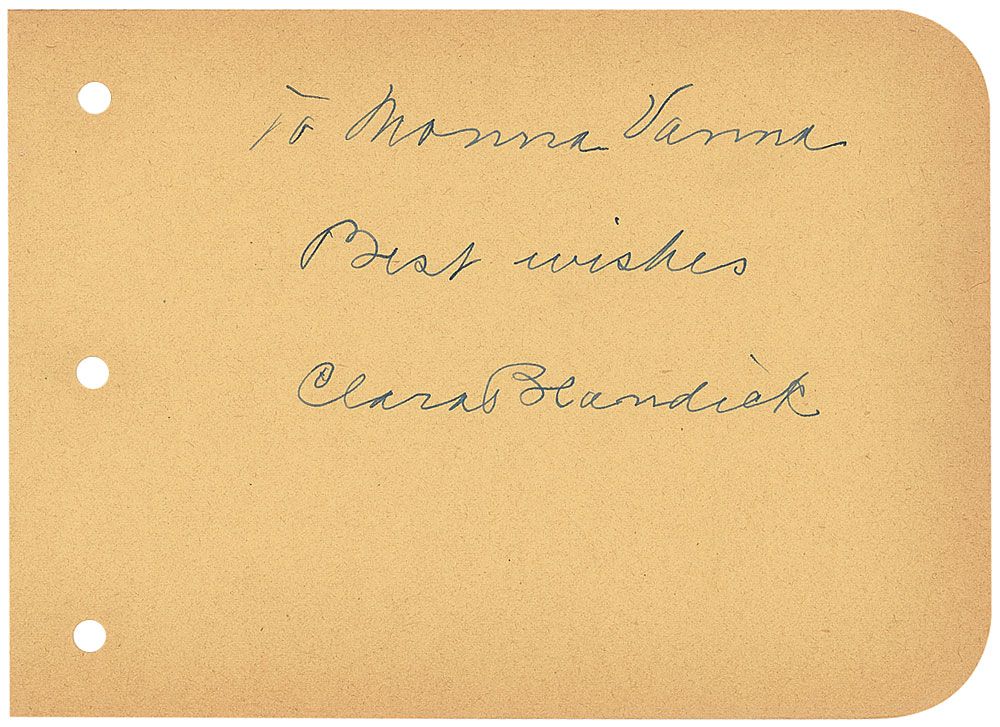 To Monna Vanna
Best wishes
Clara Blandick